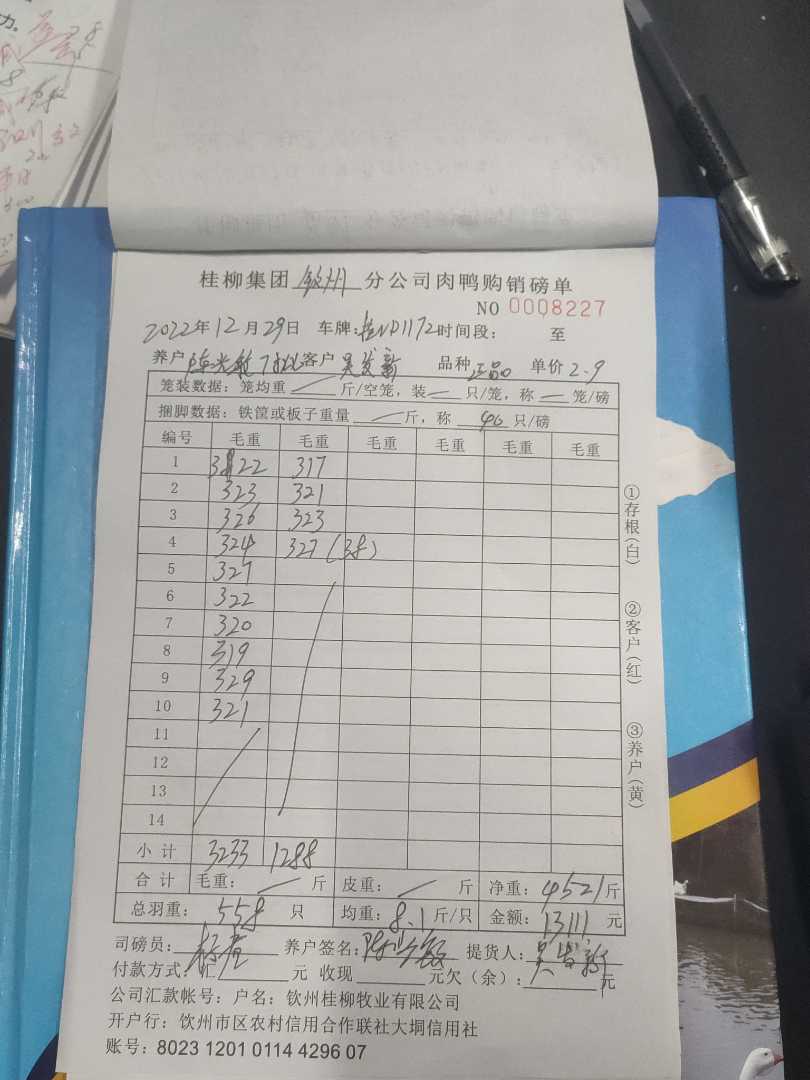 桂柳集团 钦州 分公司肉鸭购销磅单
NO 0008227
2022年12月29日 车牌:桂ND1172时间段: 至
养户 客户 吴发新 品种 正品 单价 2.9
笼装数据:笼均重 斤/空笼,装 只/笼,称 笼/磅
捆脚数据:铁筐或板子重量 斤,称 40 只/磅
编号 毛重 毛重 毛重 毛重 毛重 毛重
1 322 317
2 323 321
3 326 323
4 324 327(38)
5 327
6 322
7 320
8 319
9 329
10 321
11
12
13
14
小计 3233 1288
合计 毛重: 斤 皮重: 斤 净重:4521斤
总羽重:558 只 均重:8.1斤/只 金额:13111元
司磅员: 养户签名: 提货人:吴发新
付款方式:汇 元 收现 元欠(余): 元
公司汇款帐号:户名:钦州桂柳牧业有限公司
开户行:钦州市区农村信用合作联社大垌信用社
账号:8023 1201 0114 4296 07
①存根(白)
②客户(红)
③养户(黄)